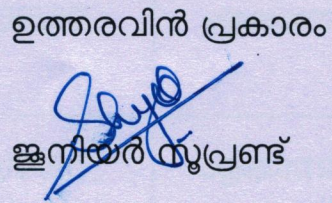 ഉത്തരവിൻ പ്രകാരം
ജൂനിയർ സൂപ്രണ്ട്